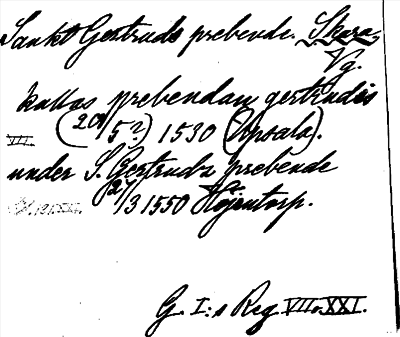 Sankt Gertruds prebende. Skara,
Vg.
kallas prebendan gertrudis
VII. (20/5?) 1530 (Upsala).
under S. Gertrudz prebende
27/3 1550 Höjentorp.
G. I:s Reg. VII o. XXI.